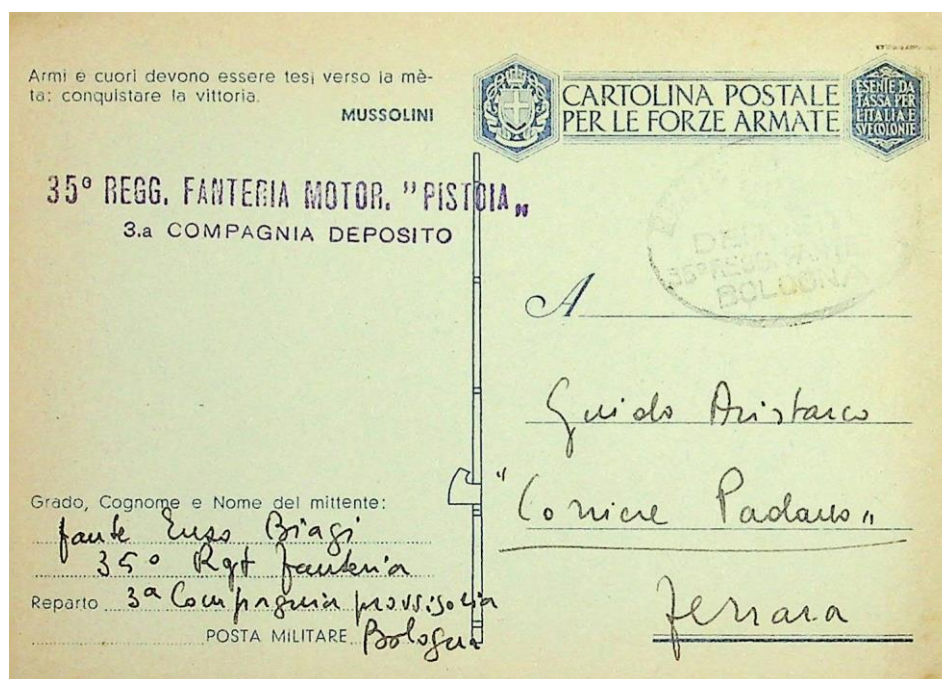 Armi e cuori devono essere tesi verso la mè-
ta: conquistare la vittoria.
MUSSOLINI
CARTOLINA POSTALE
PER LE FORZE ARMATE
ESENTE DA
TASSA PER
L'ITALIA E
SUE COLONIE
35° REGG. FANTERIA MOTOR. "PISTOIA„
3.a COMPAGNIA DEPOSITO
35° REGG. FANTE
BOLOGNA
A
Guido Aristarco
"Corriere Padano„
Ferrara
Grado, Cognome e Nome del mittente:
fante Enzo Biagi
35° Rgt fanteria
Reparto 3ª Compagnia provvisoria
POSTA MILITARE Bologna